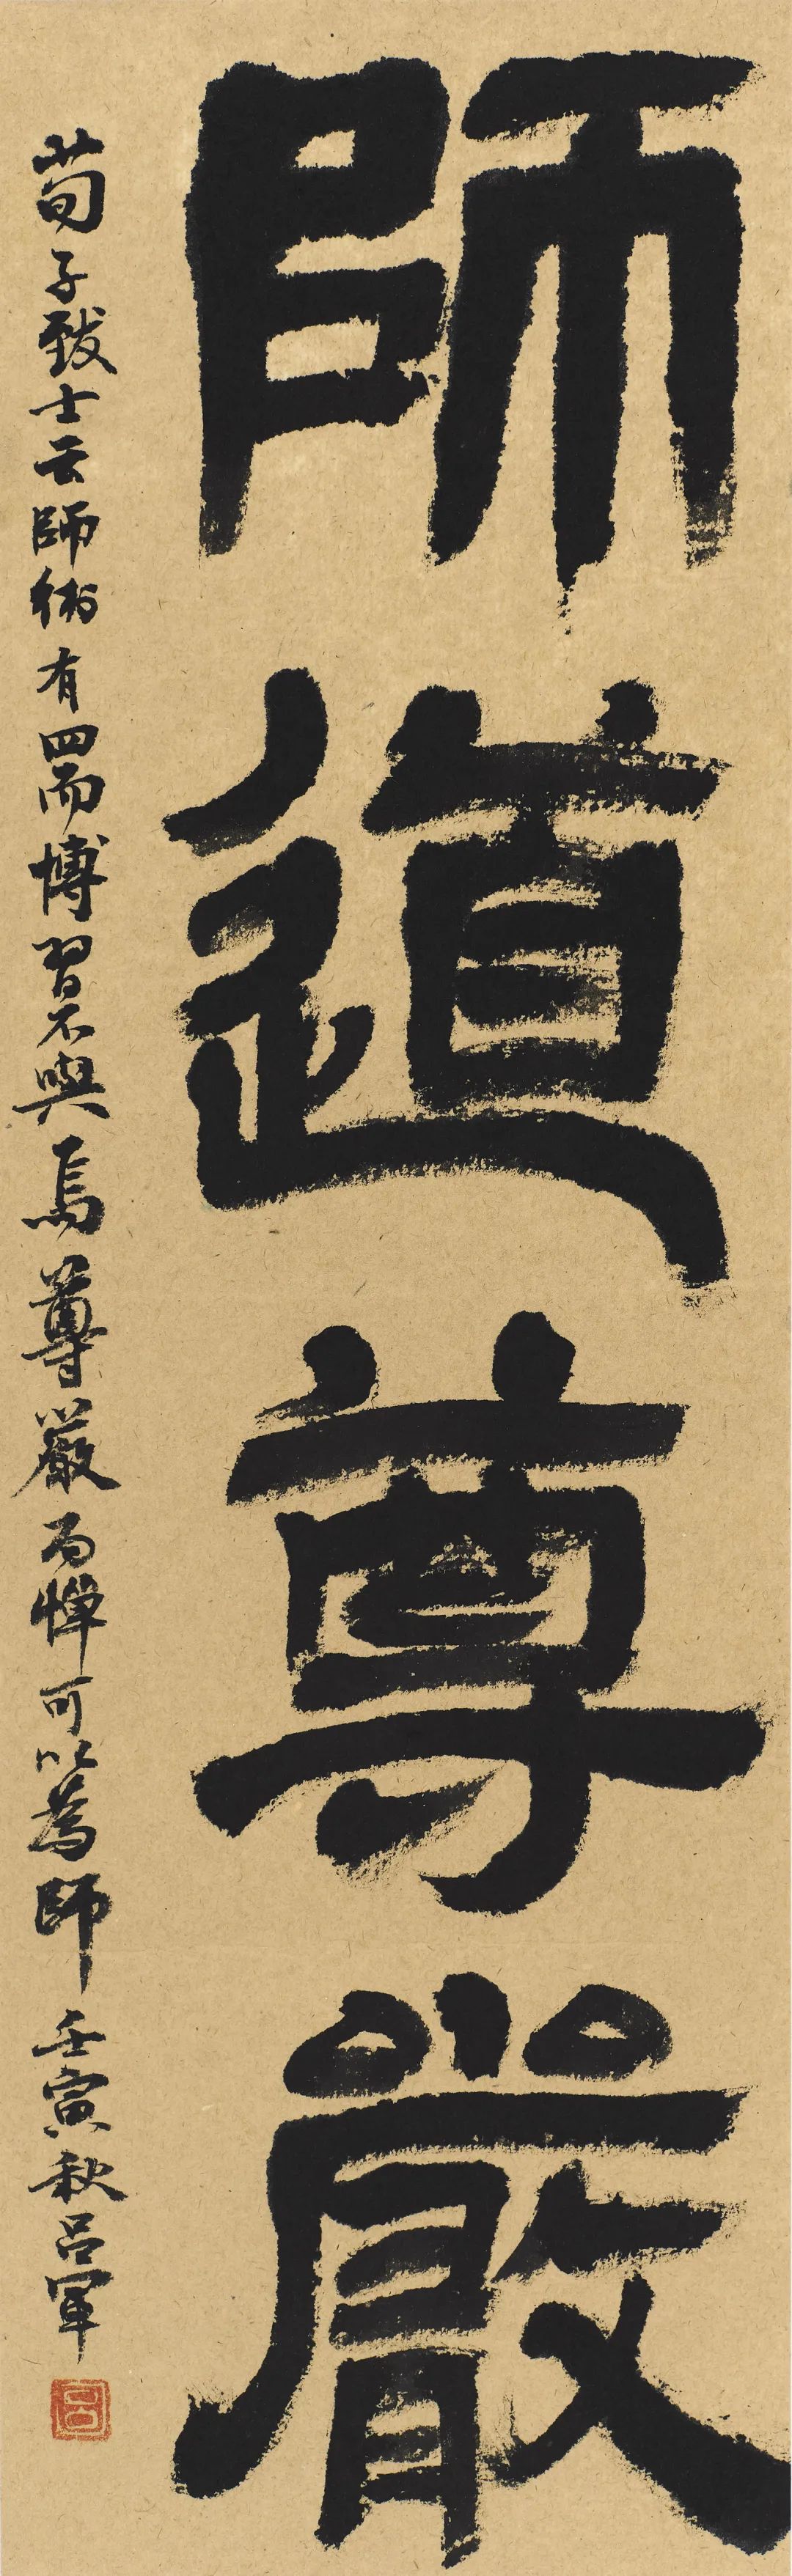 師道尊嚴
荀子致士云師術有四而博習不與焉尊嚴而憚可以為師壬寅秋呂軍
呂